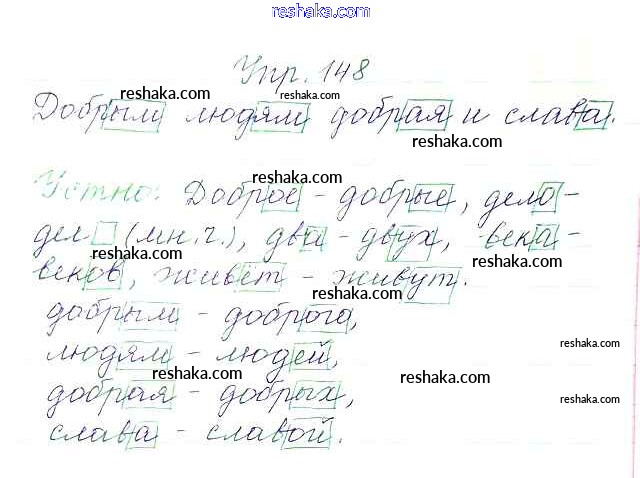 reshaka.com
Упр. 148
reshaka.com
reshaka.com
Добрым людям добрая и слава.
reshaka.com
reshaka.com
Устно: Доброе - добрые, дело -
дел (мн.ч.), два - двух, века -
reshaka.com
reshaka.com
веков, живёт - живут.
reshaka.com
добрым - доброго,
людям - людей,
reshaka.com
reshaka.com
добрая - добрых,
reshaka.com
слава - славой.